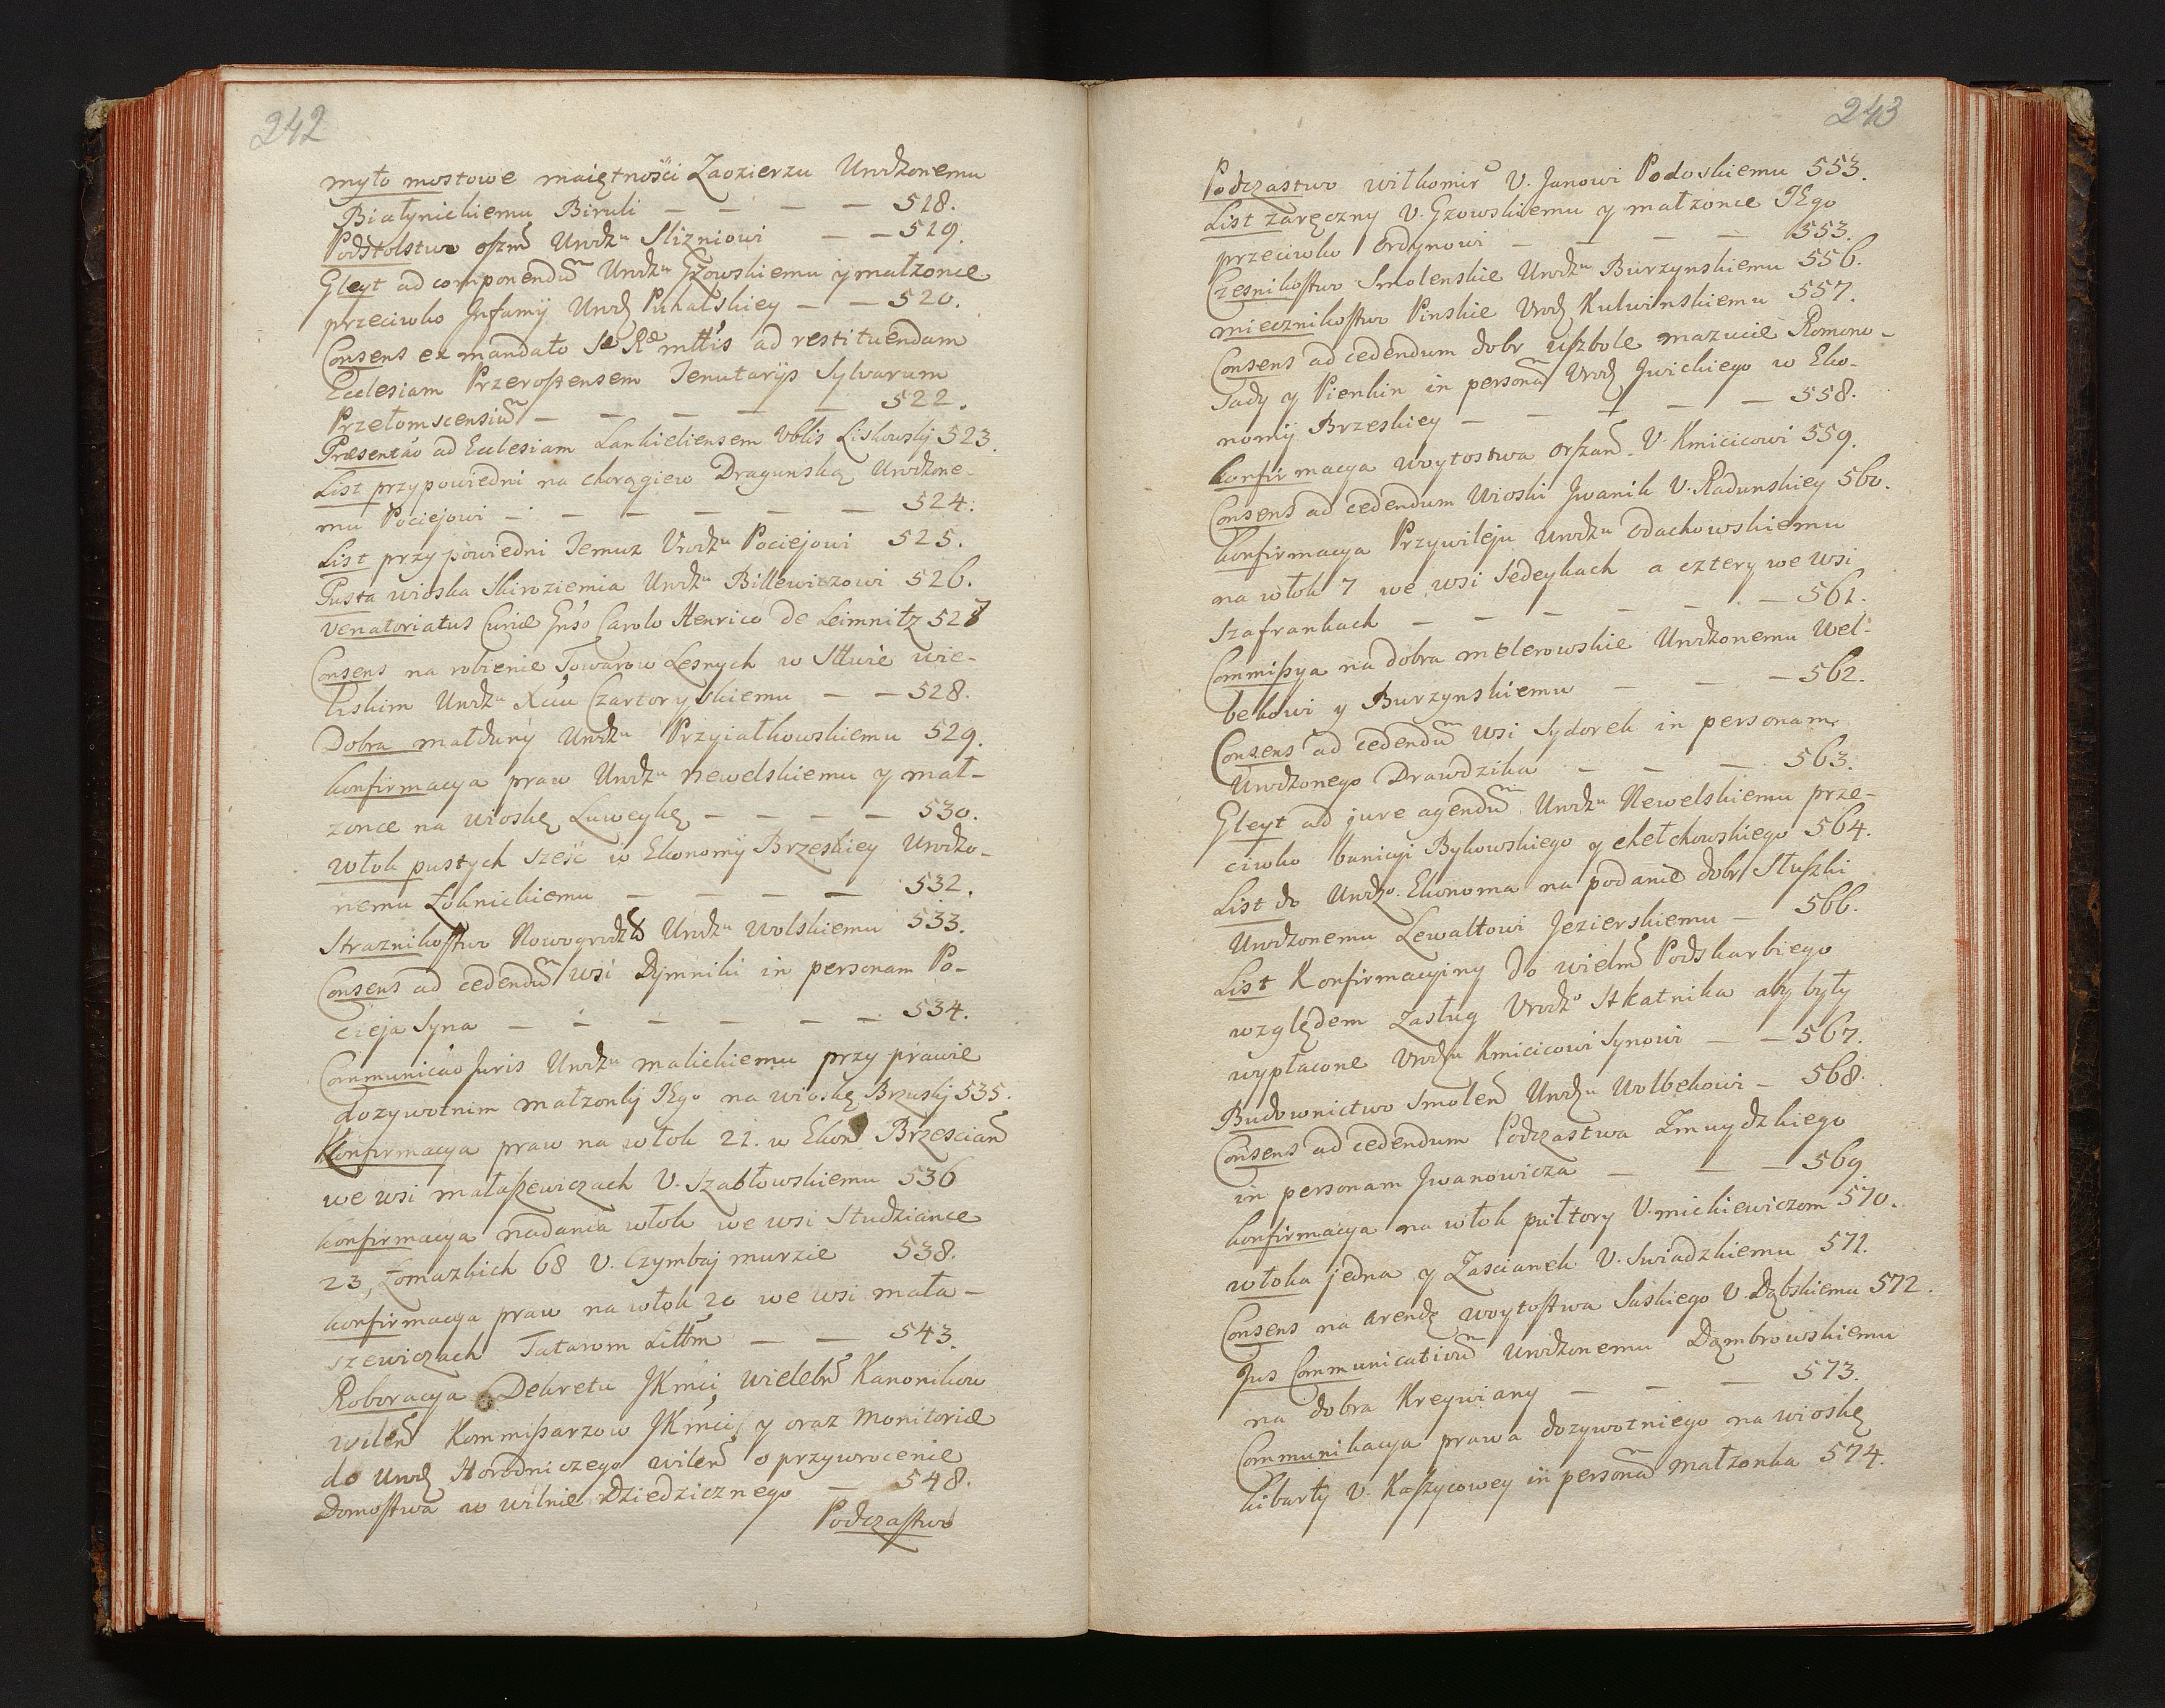 242
myto mostowe maiętnosci Zaozierzu Urodzonemu
Białynickiemu Biruli — — — — 518.
Podstolstwo oszm Urodzu Slizniowi — — 519.
Gleyt ad componendum Urodzu Gzowskiemu y małzonce
przeciwko Infamij Urodz Puhalskiey — — 520.
Consens ex mandato Sæ Ræ mttis ad restituendam
Ecclesiam Przerostensem Tenutarijs Sylvarum
Przełomscensium — — — — — 522.
Præsentao ad Ecclesiam Lankieliensem Vblis Liskowskj 523.
List przypowiedni na chorągiew Dragunską Urodzone-
mu Pociejowi — — — — — — 524.
List przypowiedni Temuz Urodzu Pociejowi 525.
Pusta wioska Skiroziemia Urodzu Billewiczowi 526.
Venatoriatus Curiæ Gnso Carolo Henrico De Leimnitz 527
Consens na robienie Towarow Lesnych w Sttwie wie-
liskim Urodzu Xciu Czartoryskiemu — — 528.
Dobra małduny Urodzu Przyiałkowskiemu 529.
konfirmacya praw Urodzu Newelskiemu y mał-
zonce na wioskę Luweykę — — — — 530.
włok pustych sześć w Ekonomij Brzeskiey Urodzo-
nemu Łoknickiemu — — — — 532.
Straznikostwo Nowogrodzk Urodzu wolskiemu 533.
Consens ad cedendum wsi Dymniki in personam Po-
cieja Syna — — — — — — 534.
Communicao Juris Urodzu malickiemu przy prawie
dozywotnim małzonkj JEgo na wioskę Brzuskj 535.
Konfirmacya praw na włok 21. w Ekon Brzescian
we wsi małaszewiczach U. Szabłowskiemu 536
konfirmacya nadania włok we wsi Studziance
23, Łomazkich 68 U. Czymbaj murzie 538.
konfirmacya praw na włok 20 we wsi mała-
szewiczach Tatarom Littm — — 543.
Roboracya Dekretu JKmci wielebn Kanonikow
wilen Kommissarzow JKmci y oraz Monitoriæ
do Urodz Horodniczego wilen o przywrocenie
Domostwa w wilnie Dziedzicznego — 548.
Podczastwo
243
Podczastwo wilkomir U. Janowi Podoskiemu 553.
List zaręczny U. Gzowskiemu y małzonce JEgo
przeciwko Ordynowi — — — — 553.
Czesnikostwo Smolenskie Urodzu Burzynskiemu 556.
miecznikostwo Pinskie Urodz Kulwinskiemu 557.
Consens ad cedendum dobr uszbole mazucie Romono-
Tady y Pienkin in personam Urodz Jwickiego w Eko-
nomij Brzeskiey — — — — — 558.
konfirmacya woytostwa orszan. U. Kmicicowi 559.
Consens ad cedendum Wioski Jwanik U. Radunskiey 560.
konfirmacya Przywileju Urodzu Odachowskiemu
na włok 7 we wsi Sedeykach a cztery we wsi
Szafrankach — — — — — — 561.
Commissya na dobra melerowskie Urodzonemu Wol-
bekowi y Burzynskiemu — — — 562.
Consens ad cedendum wsi Sydorek in personam
Urodzonego Drawdzika — — — 563.
Gleyt ad jure agendum Urodzu Newelskiemu prze-
ciwko banicyi Bykowskiego y chełchowskiego 564.
List do Urodzo Ekonoma na podanie dobr Słuszki
Urodzonemu Lewałtowi Jezierskiemu — 566.
List Konfirmacyiny do wielm Podskarbiego
względem Zasług Urodzo Skatnika aby były
wypłacone Urodzu Kmicicowi Synowi — — 567.
Budownictwo Smolen Urodzu Wolbekowi — 568.
Consens ad cedendum Podczastwa Zmuydzkiego
in personam Jwanowicza — — — 569.
konfirmacya na włok pułtory U. mickiewiczom 570.
włoka jedna y Zascianek U. Swiadzkiemu 571.
Consens na arendę woytostwa Saskiego U. Dąbskiemu 572.
Jus Communicativum Urodzonemu Dąmbrowskiemu
na dobra Kreywiany — — — 573.
Communikacya prawa dozywotniego na wioskę
kibarty U. Kaszycowey in personam małzonka 574.